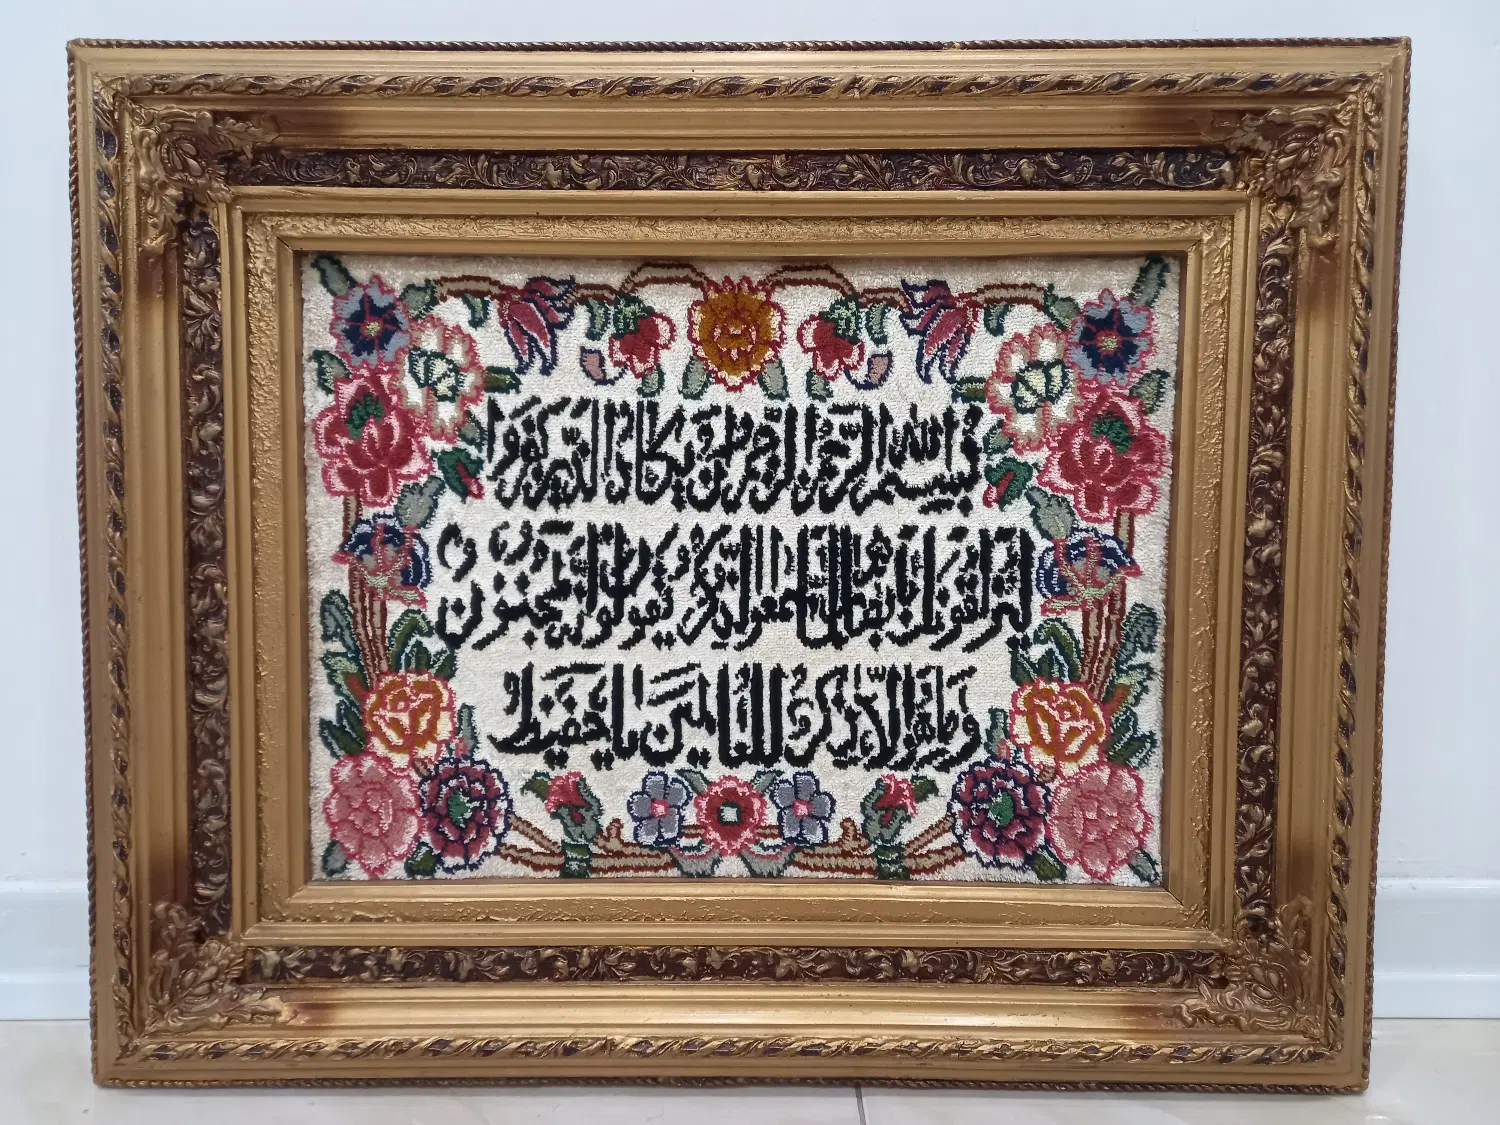 بسم الله الرحمن الرحیم و ان یکاد الذین کفروا
لیزلقونک بابصارهم لما سمعوا الذکر و یقولون انه لمجنون
و ما هو الا ذکر للعالمین یا حفیظ